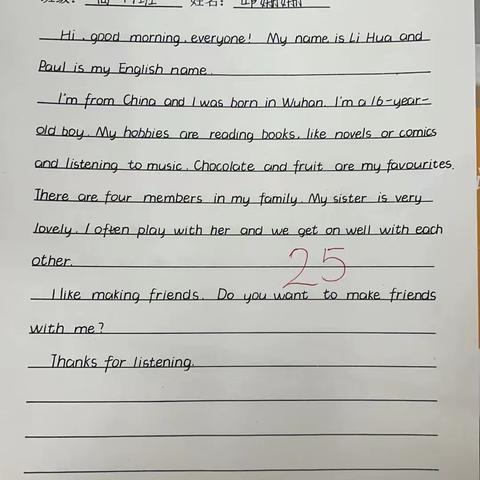 姓名:
Hi, good morning, everyone! My name is Li Hua and
Paul is my English name.
I'm from China and I was born in Wuhan. I'm a 16-year-
old boy. My hobbies are reading books, like novels or comics
and listening to music. Chocolate and fruit are my favourites.
There are four members in my family. My sister is very
lovely. I often play with her and we get on well with each
other.
25
I like making friends. Do you want to make friends
with me?
Thanks for listening.